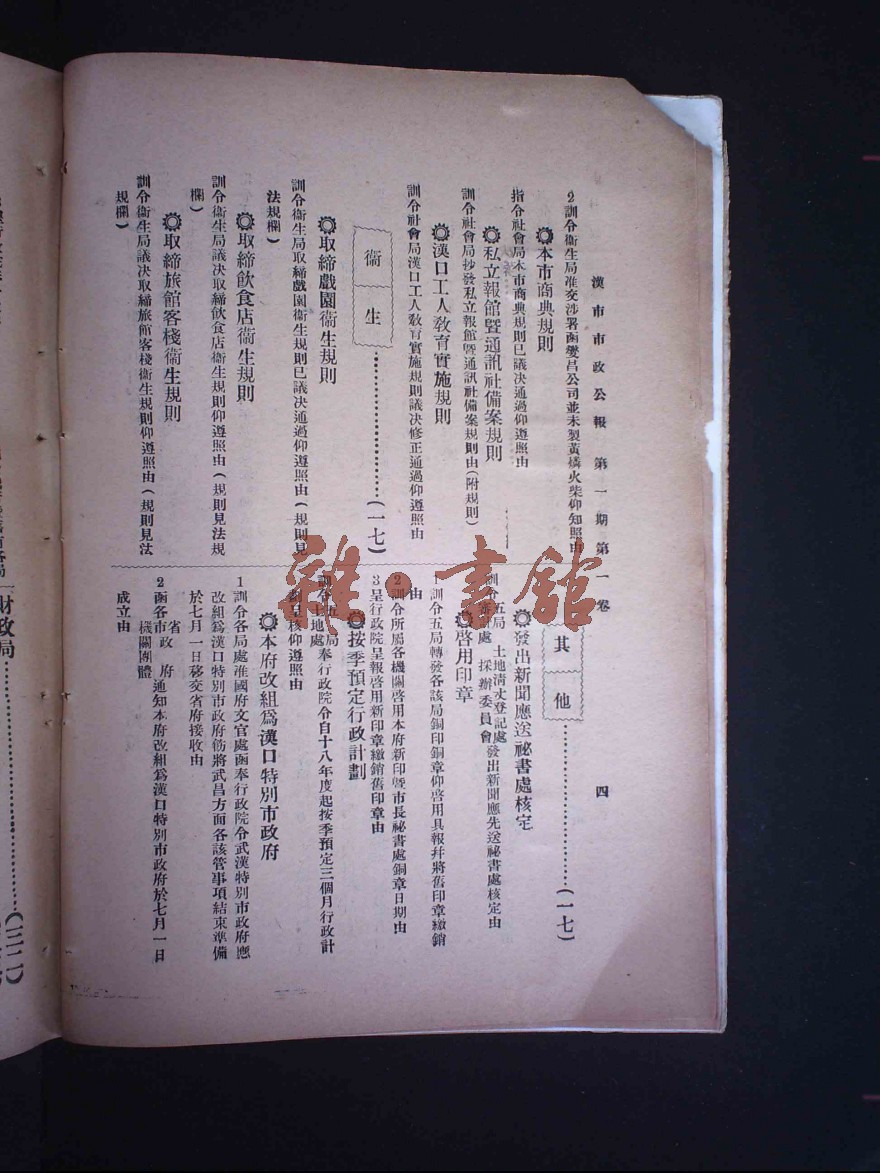 漢市市政公報　第一期第一卷　四
2訓令衞生局准交涉署函燮昌公司並未製黃燐火柴仰知照由
本市商典規則
指令社會局本市商典規則已議決通過仰遵照由
私立報館暨通訊社備案規則
訓令社會局抄發私立報館暨通訊社備案規則由(附規則)
漢口工人敎育實施規則
訓令社會局漢口工人敎育實施規則議決修正通過仰遵照由
衞生……………………(一七)
取締戲園衞生規則
訓令衞生局取締戲園衞生規則已議決通過仰遵照由(規則見
法規欄)
取締飲食店衞生規則
訓令衞生局議決取締飲食店衞生規則仰遵照由(規則見法規
欄)
取締旅館客棧衞生規則
訓令衞生局議決取締旅館客棧衞生規則仰遵照由(規則見法
規欄)
其他……………………(一七)
發出新聞應送祕書處核定
訓令五局 土地淸丈登記處
會計處 採辦委員會發出新聞應先送祕書處核定由
啓用印章
訓令五局轉發各該局銅印銅章仰啓用具報幷將舊印章繳銷
由
2訓令所屬各機關啓用本府新印暨市長祕書處銅章日期由
3呈行政院呈報啓用新印章繳銷舊印章由
按季預定行政計劃
訓令五局
土地處奉行政院令自十八年度起按季預定三個月行政計
劃呈核仰遵照由
本府改組爲漢口特別市政府
1訓令各局處准國府文官處函奉行政院令武漢特別市政府應
改組爲漢口特別市政府飭將武昌方面各該管事項結束準備
於七月一日移交省府接收由
2函各省市政府
機關團體通知本府改組爲漢口特別市政府於七月一日
成立由
財政局……………………(二二)
雜·書館